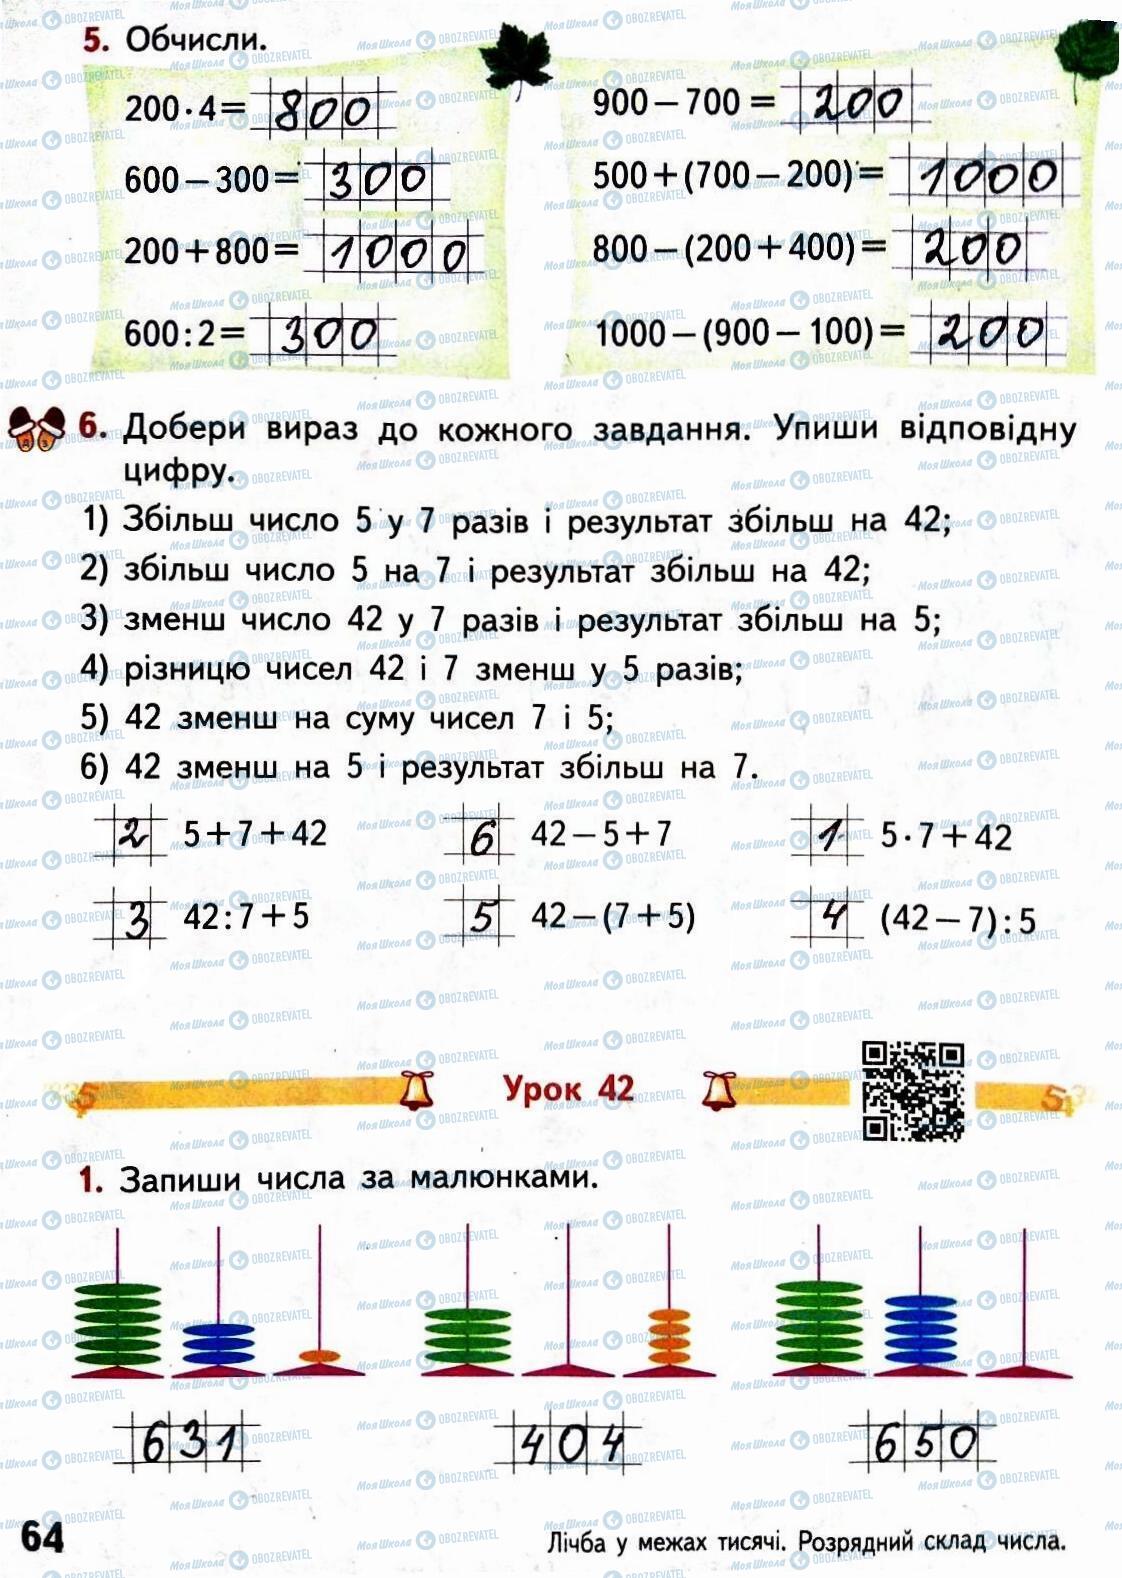 5. Обчисли.
200·4= 800
600−300= 300
200+800= 1000
600:2= 300
900−700= 200
500+(700−200)= 1000
800−(200+400)= 200
1000−(900−100)= 200
6. Добери вираз до кожного завдання. Упиши відповідну
цифру.
1) Збільш число 5 у 7 разів і результат збільш на 42;
2) збільш число 5 на 7 і результат збільш на 42;
3) зменш число 42 у 7 разів і результат збільш на 5;
4) різницю чисел 42 і 7 зменш у 5 разів;
5) 42 зменш на суму чисел 7 і 5;
6) 42 зменш на 5 і результат збільш на 7.
2 5+7+42 6 42−5+7 1 5·7+42
3 42:7+5 5 42−(7+5) 4 (42−7):5
Урок 42
1. Запиши числа за малюнками.
631 404 650
64 Лічба у межах тисячі. Розрядний склад числа.
МояШкола OBOZREVATEL